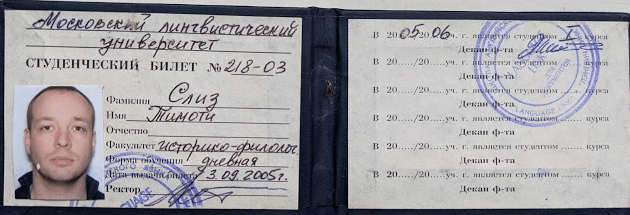 Московский лингвистический
университет
СТУДЕНЧЕСКИЙ БИЛЕТ № 218-03
Фамилия Слиз
Имя Тимоти
Отчество
Факультет историко-филолог.
Форма обучения дневная
Дата выдачи билета 3.09.2005г.
Ректор
В 2005/2006 уч. г. является студентом I курса
Декан ф-та
В 20...../20.....уч. г. является студентом ....... курса
Декан ф-та
В 20...../20.....уч. г. является студентом ....... курса
Декан ф-та
В 20...../20.....уч. г. является студентом ....... курса
Декан ф-та
В 20...../20.....уч. г. является студентом ....... курса
Декан ф-та
В 20...../20.....уч. г. является студентом ....... курса
Декан ф-та
LANGUAGE
LANGUAGE